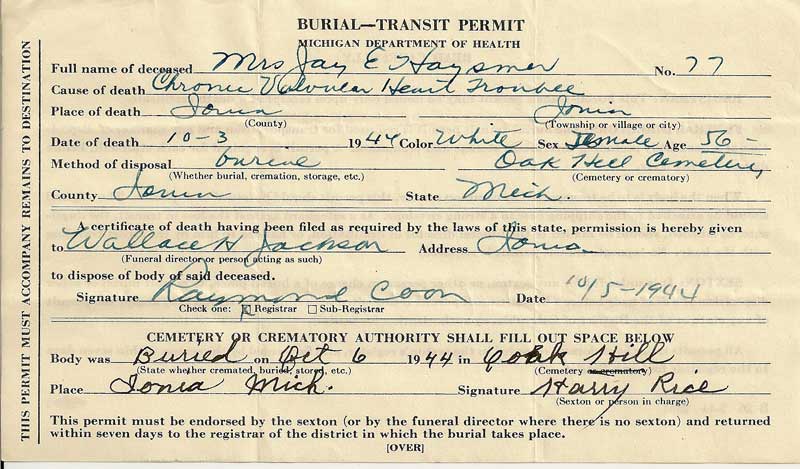 BURIAL—TRANSIT PERMIT
MICHIGAN DEPARTMENT OF HEALTH
Full name of deceased Mrs Jay E Haysmer No. 77
Cause of death Chronic Valvular Heart Trouble
Place of death Ionia Ionia
(County) (Township or village or city)
Date of death 10-3 1944 Color White Sex Female Age 56-
Method of disposal burial Oak Hill Cemetery
(Whether burial, cremation, storage, etc.) (Cemetery or crematory)
County Ionia State Mich.
A certificate of death having been filed as required by the laws of this state, permission is hereby given
to Wallace H Jackson Address Ionia
(Funeral director or person acting as such)
to dispose of body of said deceased.
Signature Raymond Coon Date 10/5-1944
Check one: Registrar Sub-Registrar
CEMETERY OR CREMATORY AUTHORITY SHALL FILL OUT SPACE BELOW
Body was Buried on Oct 6 1944 in Oak Hill
(State whether cremated, buried, stored, etc.) (Cemetery or crematory)
Place Ionia Mich. Signature Harry Rice
(Sexton or person in charge)
This permit must be endorsed by the sexton (or by the funeral director where there is no sexton) and returned
within seven days to the registrar of the district in which the burial takes place.
[OVER]
THIS PERMIT MUST ACCOMPANY REMAINS TO DESTINATION